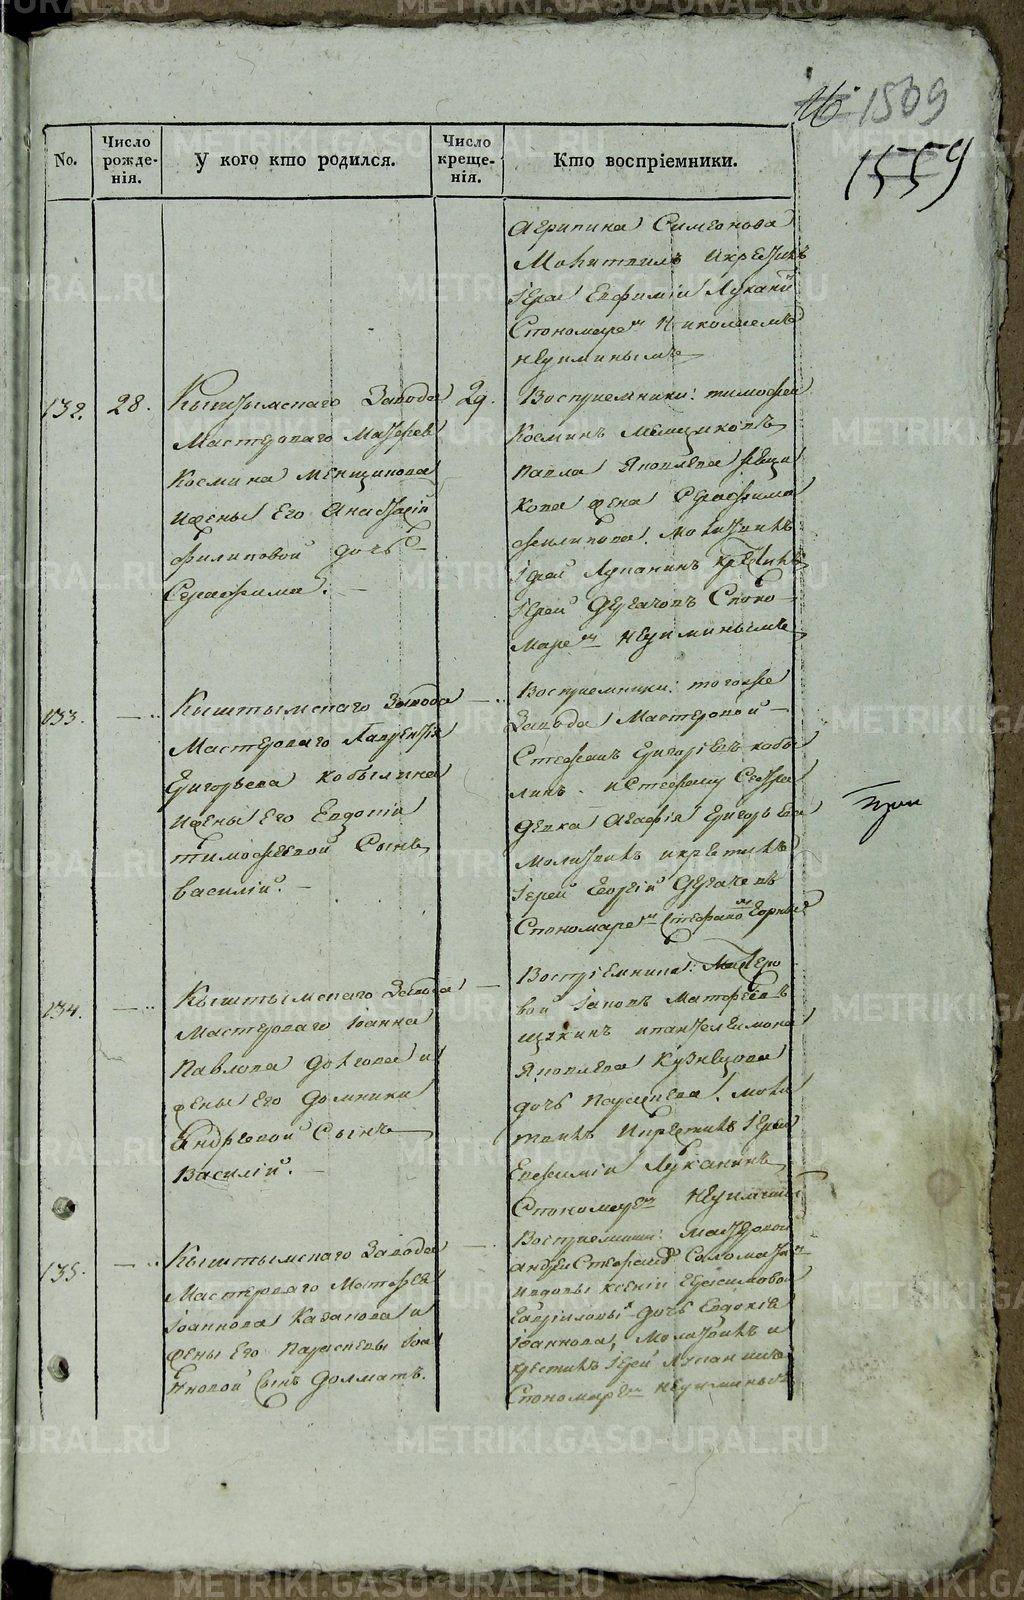 1509
1559
No.
Число рожде- нія.
У кого кто родился.
Число креще- нія.
Кто воспріемники.
Агрипина Симеонова
Молитвилъ икрестилъ
Іерей Евфимій Луканин
Спономаремъ Николаемъ
Неуиминымъ
132.
28.
Кыштымскаго Завода
Мастероваго Матфея
Космина Менщикова
ижены Его Анастасіи
Филиповой дочь
Серафима.
29.
Воспріемники: тимофей
Косминъ Менщиковъ
Павла Яковлева
кова жена Серафима
филипова. Молитвилъ
Іерей Луканинъ крестилъ
Іерей Дергачовъ Споно-
маремъ Неуиминымъ
133.
Кыштымскаго Завода
Мастероваго Лаврентія
Григорьева Кобылина
ижены Его Евдокіи
тимофеевой Сынъ
василій.
Воспріемники: тогоже
Завода Мастеровой
Стефанъ Григорьевъ кобы
линъ. иСтефану Сестра
Девка Агафія Григорьева
молитвилъ икрестилъ
Іерей Георгій Дергачевъ
Спономаремъ Стефаномъ
134.
Кыштымскаго Завода
Мастероваго Іоанна
Павлова Долгова и
жены Его Домники
Андреевой Сынъ
Василій.
Воспріемники: Мастеро
вой Іаковъ Матфеевъ
ипантелеимона
Яковлева Кузнецова
дочь Параскева. моли
твилъ Икрестилъ Іерей
Евфимій Луканинъ
Спономаремъ Неуимины
135.
Кыштымскаго Завода
Мастероваго Матфея
Іоаннова Казакова и
жены Его Параскевы Іоа
нновой Сынъ Долматъ.
Воспріемники: Мастеровой
андрей Стефановъ Соломатин
ивдовы ксеніи Герасимовой
дочь Евдокія
Іоаннова, Молитвилъ и
крестилъ Іерей Луканинъ
Спономаремъ Неуиминымъ
METRIKI.GASO-URAL.RU